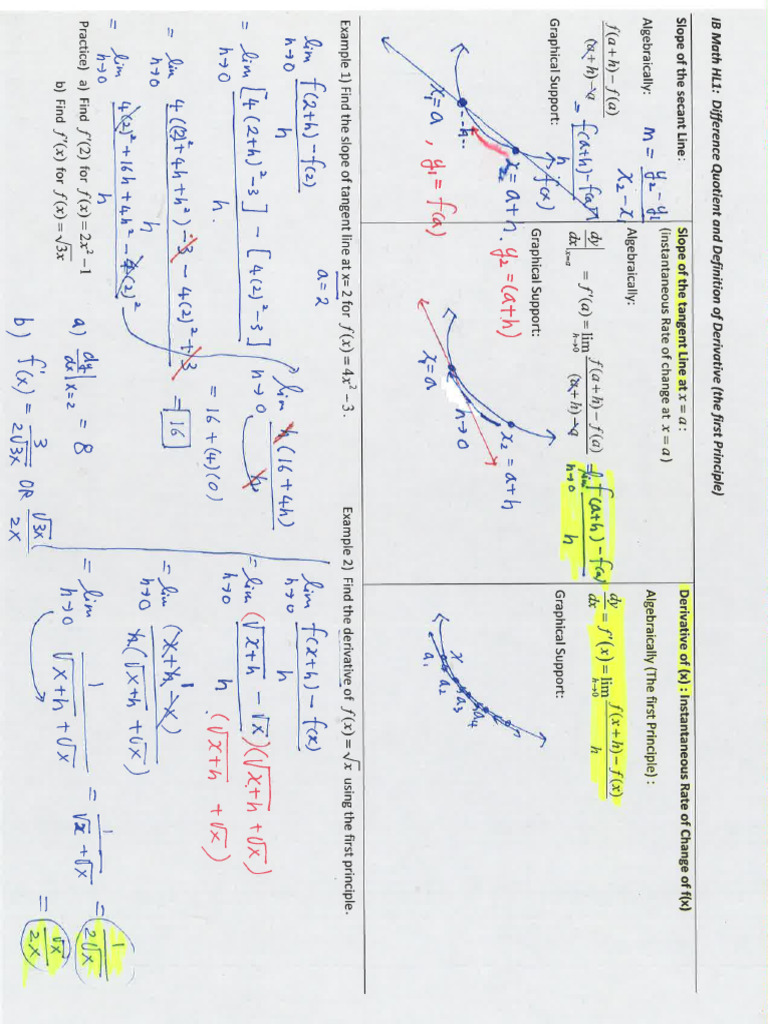 IB Math HL1: Difference Quotient and Definition of Derivative (the first Principle)
Slope of the secant Line:
Algebraically:
f(a+h)−f(a) / (a+h)−a = f(a+h)−f(a) / h
m = y₂ − y₁ / x₂ − x₁
Graphical Support:
f(x)
x₂ = a+h
y₂ = (a+h)
--h--
x₁ = a , y₁ = f(a)
Slope of the tangent Line at x = a:
(instantaneous Rate of change at x = a)
Algebraically:
dy/dx|x=a = f'(a) = lim h→0 f(a+h)−f(a) / (a+h)−a = lim h→0 f(a+h)−f(a) / h
Graphical Support:
x₂ = a+h
h→0
x₁ = a
Derivative of (x) : Instantaneous Rate of Change of f(x)
Algebraically (The first Principle) :
dy/dx = f'(x) = lim h→0 f(x+h)−f(x) / h
Graphical Support:
x
a₁ a₂ a₃ a₄
Example 1) Find the slope of tangent line at x= 2 for f(x) = 4x² − 3.
a = 2
lim h→0 f(2+h) − f(2) / h
= lim h→0 [4(2+h)² −3] − [4(2)² −3] / h.
= lim h→0 4((2)² + 4h + h²) − 3 − 4(2)² + 3 / h
= lim h→0 4(2)² + 16h + 4h² − 4(2)² / h
lim h→0 h(16 + 4h) / h
= 16 + (4)(0)
= 16
Practice) a) Find f'(2) for f(x) = 2x² − 1
b) Find f'(x) for f(x) = √3x
a) dy/dx|x=2 = 8
b) f'(x) = 3 / 2√3x OR √3x / 2x
Example 2) Find the derivative of f(x) = √x using the first principle.
lim h→0 f(x+h) − f(x) / h
= lim h→0 (√x+h − √x)(√x+h + √x) / h (√x+h + √x)
= lim h→0 (x+h − x) / h(√x+h + √x)
= lim h→0 1 / √x+h + √x = 1 / √x + √x = 1 / 2√x
= √x / 2x